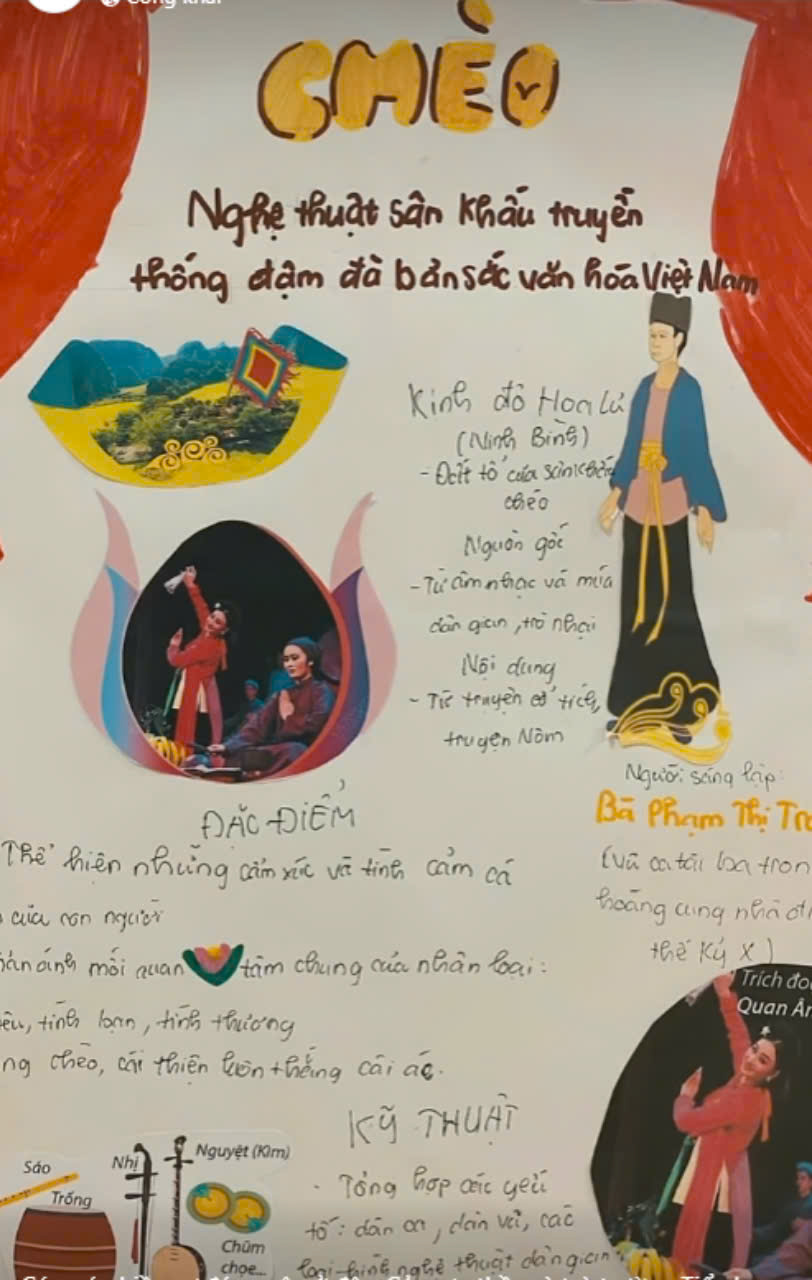 CHÈO
Nghệ thuật sân khấu truyền
thống đậm đà bản sắc văn hóa Việt Nam
Kinh đô Hoa Lư
(Ninh Bình)
- Đất tổ của sân khấu
chèo
Nguồn gốc
- Từ âm nhạc và múa
dân gian, trò nhại
Nội dung
- Từ truyện cổ tích,
truyện Nôm
Người sáng lập:
Bà Phạm Thị
(Vũ ca tài ba
hoàng cung nhà
thế kỷ X)
ĐẶC ĐIỂM
Thể hiện những cảm xúc và tình cảm cá
của con người
mối quan tâm chung của nhân loại:
tình bạn, tình thương
chèo, cái thiện luôn thắng cái ác.
Trích
Quan
KỸ THUẬT
- Tổng hợp các yếu
tố: dân ca, dân vũ, các
loại hình nghệ thuật dân gian
Sáo
Trống
Nhị
Nguyệt (Kìm)
Chũm
chọe...